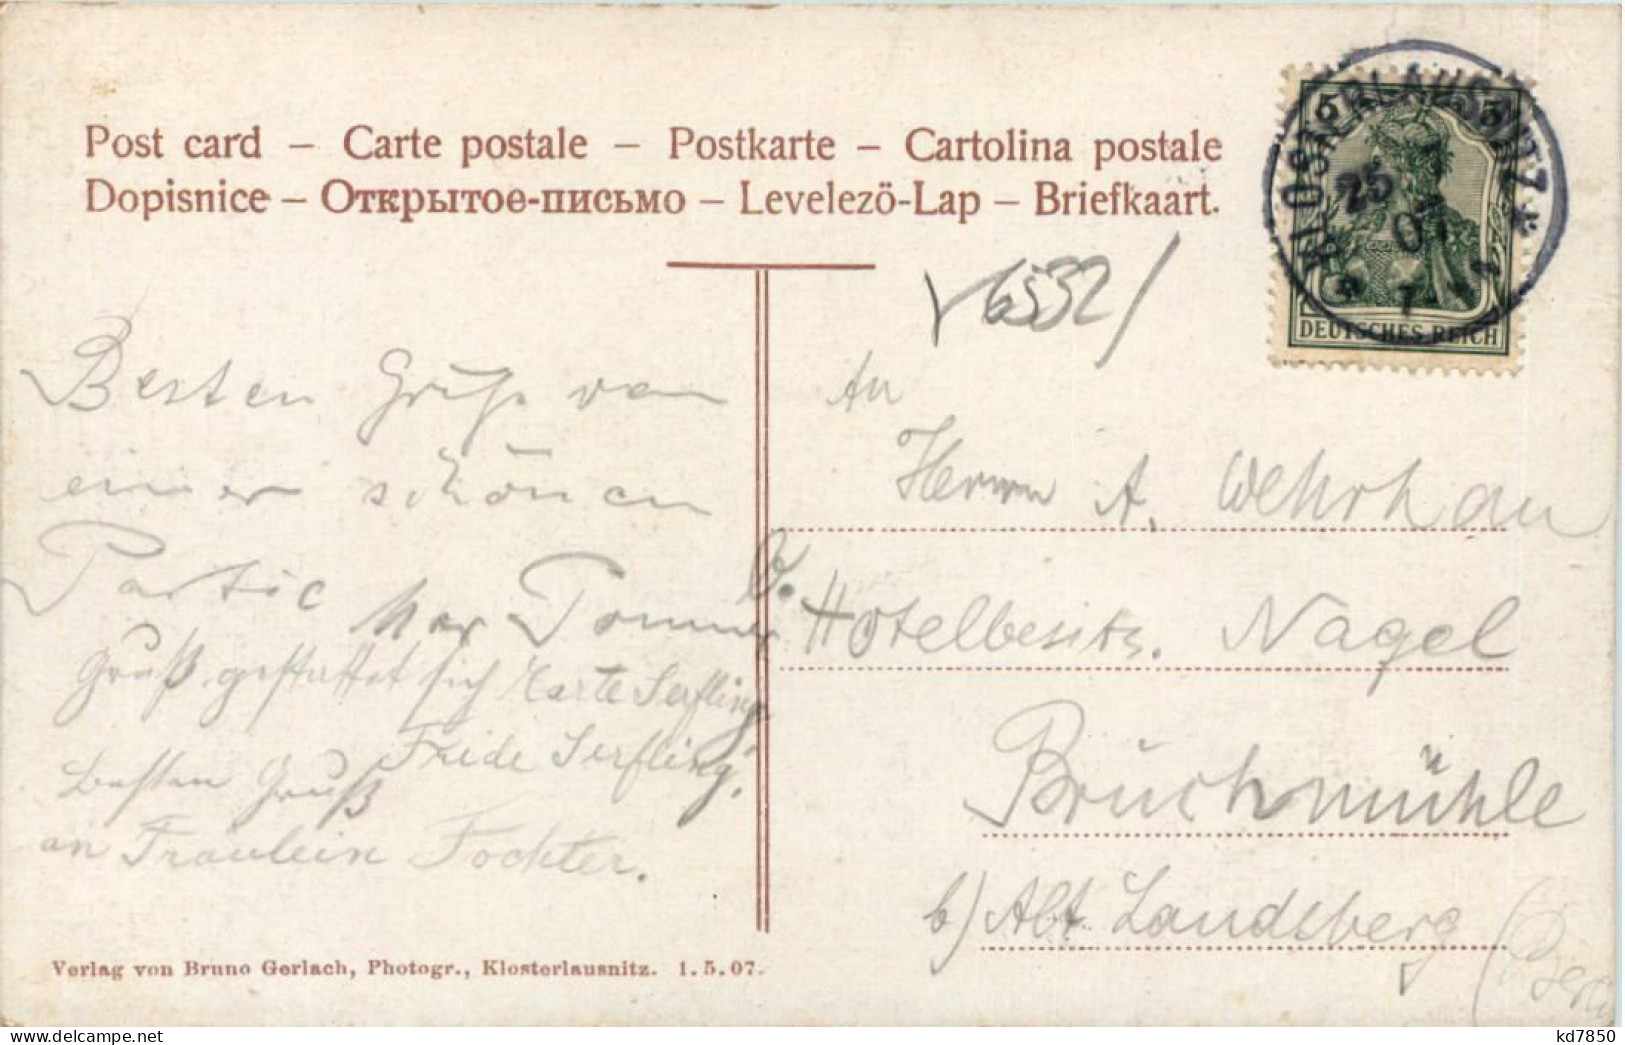 Post card – Carte postale – Postkarte – Cartolina postale
Dopisnice – Открытое-письмо – Levelezö-Lap – Briefkaart.
KLOSTERLAUSNITZ *
25
07
5 5
DEUTSCHES REICH
6532/
Besten Gruß von
einer schönen
Partie
Max
Gruß gestattet sich Marte Serfling,
Fride Serfling.
besten Gruß
an Fräulein Tochter.
An
Herrn A. Wehrhan
b. Hotelbesitz. Nagel
Bruchmühle
b/ Alt Landsberg
Verlag von Bruno Gerlach, Photogr., Klosterlausnitz. 1.5.07.
kd7850